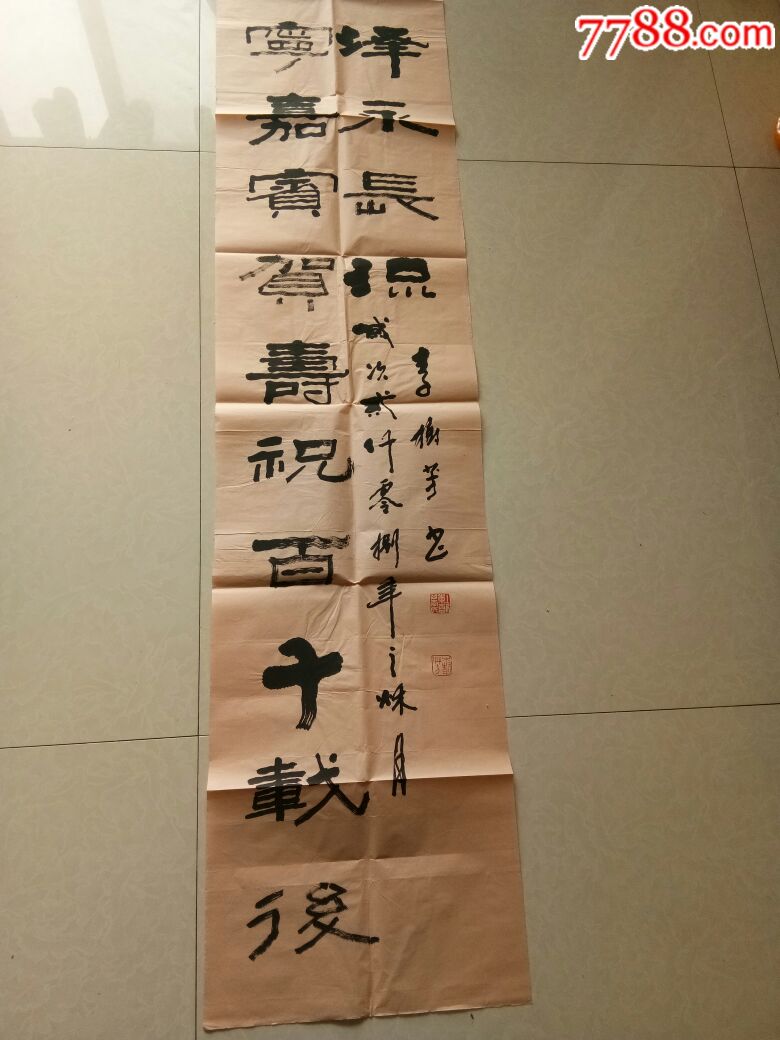 7788.com
寧嘉賓賀壽祝百千載後
泽永長流
歲次貳仟零捌年之秌月
李樹芳书